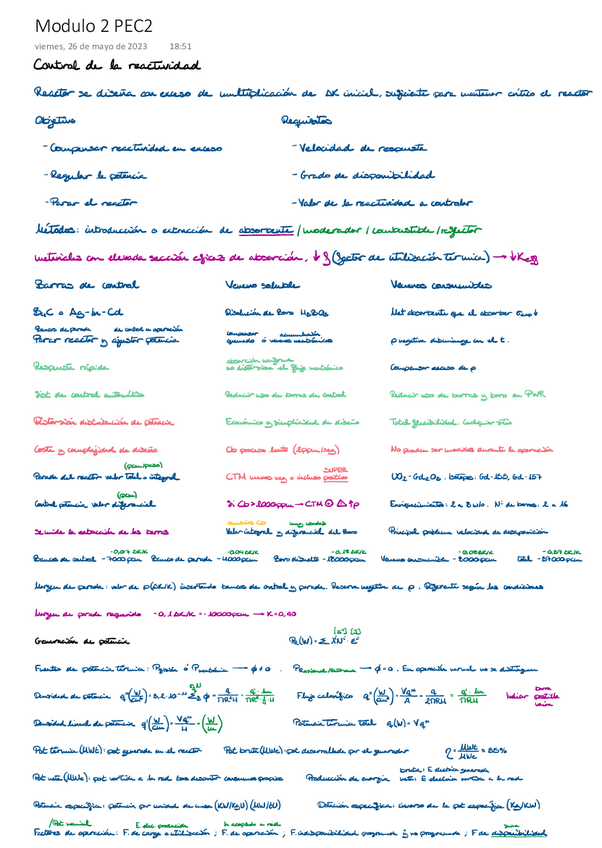 Modulo 2 PEC2
viernes, 26 de mayo de 2023 18:51
Control de la reactividad
Reactor se diseña con exceso de multiplicación de ΔK inicial, suficiente para mantener crítico el reactor
Objetivo Requisitos
- Compensar reactividad en exceso - Velocidad de respuesta
- Regular la potencia - Grado de disponibilidad
- Parar el reactor - Valor de la reactividad a controlar
Métodos: introducción o extracción de absorbente / moderador / combustible / reflector
materiales con elevada sección eficaz de absorción, ↓ f (factor de utilización térmica) → ↓ Keff
Barras de control Veneno soluble Venenos consumibles
B4C o Ag-In-Cd Disolución de Boro H3BO3 Mat absorbente que al absorber ↓
Bancos de parada de control en operación compensar acumulación
Parar reactor y ajustar potencia quemado ó venenos neutrónicos ρ negativa disminuye en el t.
absorción uniforme
Respuesta rápida no distorsiona el flujo neutrónico Compensar exceso de ρ
Sist de control automático Reducir uso de barras de control Reducir uso de barras y boro en PWR
Distorsión distribución de potencia Económico y simplicidad de diseño Total flexibilidad. Cualquier sitio
Coste y complejidad de diseño Cb proceso lento (2ppm/seg) No pueden ser movidos durante la operación
(pcm/paso) SUPER
Parada del reactor valor total o integral CTM menos neg o incluso positivo UO2-Gd2O3. Isótopos: Gd-155, Gd-157
(pcm)
Control potencia valor diferencial Si Cb > 2000ppm → CTM ⊕ △↑ρ Enriquecimientos: 2 a 8 w/o. Nº de barras: 2 a 16
cambios Cb muy usados
Se mide la extracción de las barras Valor integral y diferencial del Boro Principal problema velocidad de desaparición
-0,07 ΔK/K -0,04 ΔK/K -0,18 ΔK/K -0,08 ΔK/K -0,37 ΔK/K
Bancos de control -7000pcm Bancos de parada -4000pcm Boro disuelto -18000pcm Veneno consumible -8000pcm total -37000pcm
Margen de parada: valor de ρ(ΔK/K) insertando bancos de control y parada. Reserva negativa de ρ. Diferente según las condiciones
Margen de parada requerido -0,1 ΔK/K = -10000pcm → K=0,90
Generación de potencia
Fuentes de potencia térmica: Pfisión ó Pneutrónica → ϕ ≠ 0. Presidual → ϕ = 0. En operación normal no se distinguen
Densidad de potencia Flujo calorífico
Densidad lineal de potencia Potencia térmica total q(W) = Vq'''
Pot térmica (MWt): pot generada en el reactor Pot bruta (MWe): pot desarrollada por el generador η = MWe / MWt = 35%
bruta: E eléctrica generada
Pot neta (MWe): pot vertida a la red tras descontar consumos propios Producción de energía neta: E eléctrica vertida a la red
Potencia específica: potencia por unidad de masa (KW/KgU) (MW/tU) Dotación específica: inverso de la pot específica (Kg/KW)
/Pot nominal E elec producida h acoplado a red
Factores de operación: F. de carga o utilización; F. de operación; F. indisponibilidad programada y no programada; F de disponibilidad